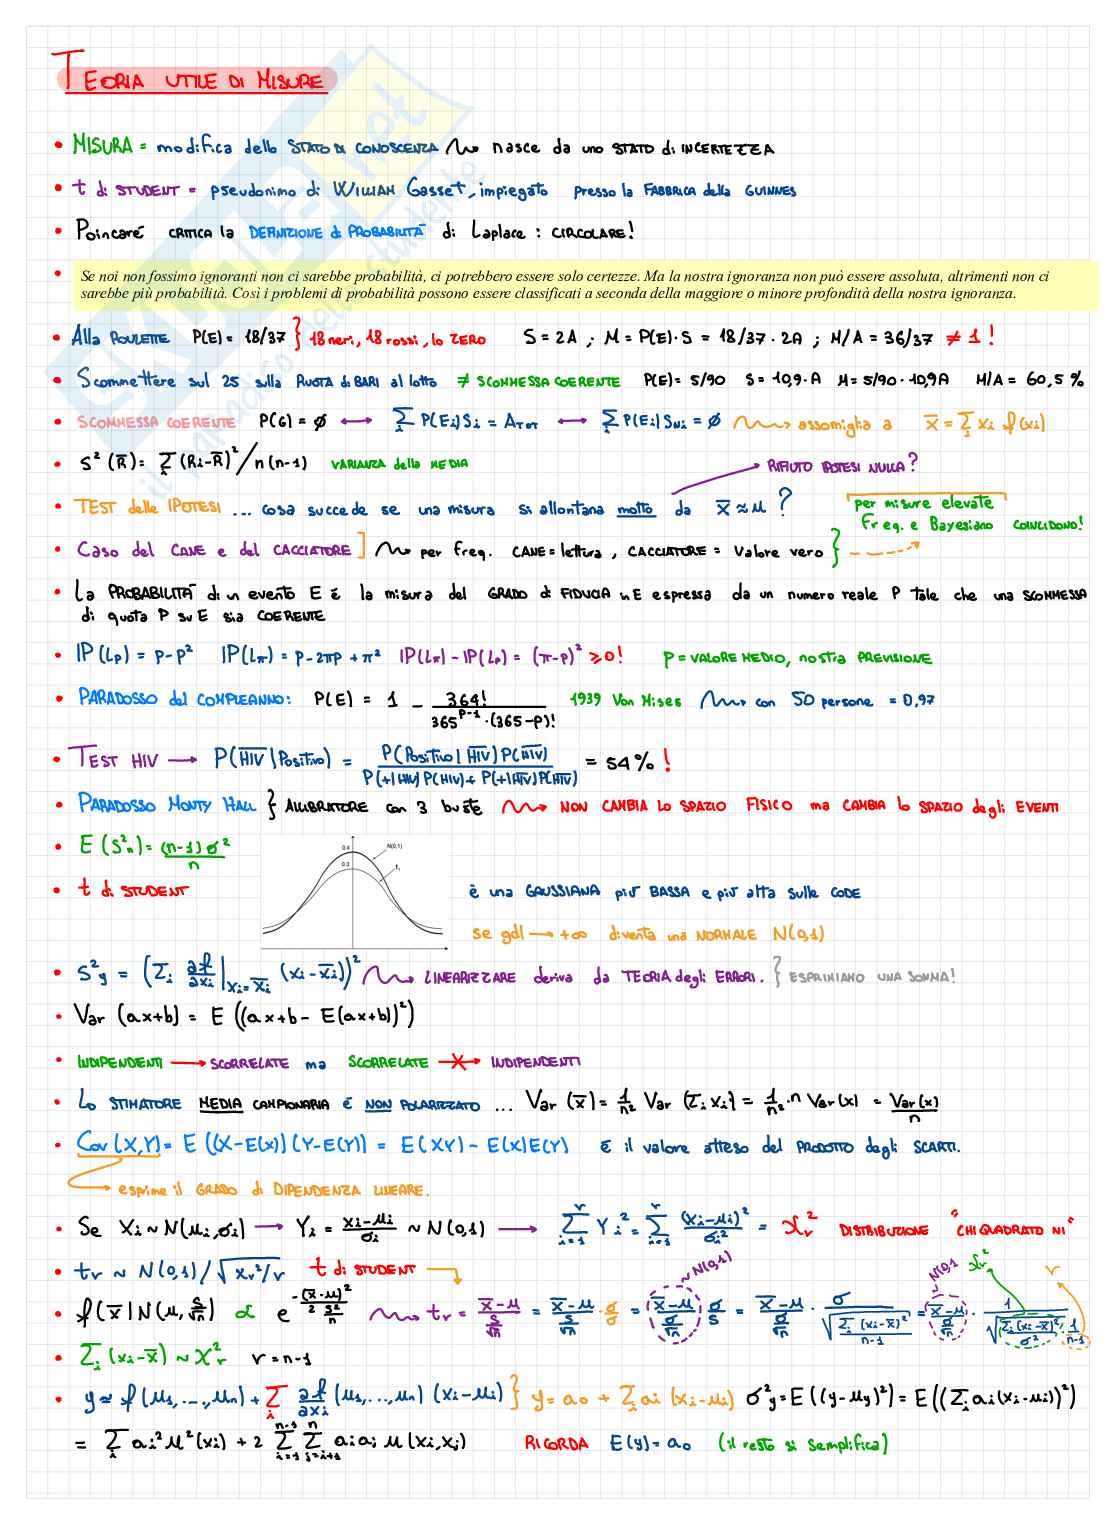 TEORIA UTILE DI MISURE
• MISURA = modifica dello STATO DI CONOSCENZA ⟿ nasce da uno STATO di INCERTEZZA
• t di STUDENT = pseudonimo di WILLIAM Gasset, impiegato presso la FABBRICA della GUINNES
• Poincaré CRITICA la DEFINIZIONE di PROBABILITÀ di Laplace : CIRCOLARE!
• Se noi non fossimo ignoranti non ci sarebbe probabilità, ci potrebbero essere solo certezze. Ma la nostra ignoranza non può essere assoluta, altrimenti non ci
sarebbe più probabilità. Così i problemi di probabilità possono essere classificati a seconda della maggiore o minore profondità della nostra ignoranza.
• Alla ROULETTE P(E) = 18/37 } 18 neri, 18 rossi, lo ZERO S = 2A ; M = P(E)·S = 18/37 · 2A ; M/A = 36/37 ≠ 1 !
• Scommettere sul 25 sulla RUOTA di BARI al lotto ≠ SCOMMESSA COERENTE P(E) = 5/90 S = 10,9·A M = 5/90 · 10,9A M/A = 60,5 %
• SCOMMESSA COERENTE P(G) = ∅ ⟷ Σi P(Ei)Si = ATOT ⟷ Σi P(Ei)SNi = ∅ ⟿ assomiglia a x̅ = Σi xi f(xi)
• S²(R̅) = Σi (Ri-R̅)² / n(n-1) VARIANZA della MEDIA
RIFIUTO IPOTESI NULLA?
• TEST delle IPOTESI ... cosa succede se una misura si allontana molto da x̅ ≈ μ ?
per misure elevate
Freq. e Bayesiano COINCIDONO!
• Caso del CANE e del CACCIATORE ] ⟿ per freq. CANE = lettura , CACCIATORE = Valore vero }
• La PROBABILITÀ di un evento E è la misura del GRADO di FIDUCIA in E espressa da un numero reale P tale che una SCOMMESSA
di quota P su E sia COERENTE
• IP(Lp) = p-p² IP(Lπ) = p-2πp+π² IP(Lπ) - IP(Lp) = (π-p)² ≥0! p = VALORE MEDIO, nostra PREVISIONE
• PARADOSSO del COMPLEANNO: P(E) = 1 - 364! / 365^(P-1)·(365-P)! 1939 Von Mises ⟿ con 50 persone = 0,97
• TEST HIV → P(H̅I̅V̅|Positivo) = P(Positivo|H̅I̅V̅)P(H̅I̅V̅) / P(+|HIV)P(HIV)+P(+|H̅I̅V̅)P(H̅I̅V̅) = 54% !
• PARADOSSO MONTY HALL } ALLIBRATORE con 3 buste ⟿ NON CAMBIA LO SPAZIO FISICO ma CAMBIA lo SPAZIO degli EVENTI
• E(S²n) = (n-1)σ² / n
0.4
N(0,1)
0.3
t₁
• t di STUDENT è una GAUSSIANA più BASSA e più alta sulle CODE
se gdl → +∞ diventa una NORMALE N(0,1)
• S²y = (Σi ∂f/∂xi |xi=x̅i (xi-x̅i))² ⟿ LINEARIZZARE deriva da TEORIA degli ERRORI. } ESPRIMIAMO UNA SOMMA!
• Var (ax+b) = E ((ax+b - E(ax+b))²)
• INDIPENDENTI → SCORRELATE ma SCORRELATE ↛ INDIPENDENTI
• Lo STIMATORE MEDIA CAMPIONARIA è NON POLARIZZATO ... Var (x̅) = 1/n² Var (Σi xi) = 1/n² · n Var(x) = Var(x)/n
• Cov(X,Y) = E((X-E(X))(Y-E(Y)) = E(XY) - E(X)E(Y) È il valore atteso del PRODOTTO degli SCARTI.
esprime il GRADO di DIPENDENZA LINEARE.
• Se Xi ~ N(μi,σi) → Yi = xi-μi / σi ~ N(0,1) → Σ i=1 r Yi² = Σ i=1 r (xi-μi)²/σi² = χr² DISTRIBUZIONE "CHI QUADRATO NI"
• tr ~ N(0,1)/√χr²/r t di STUDENT
~N(0,1) ~N(0,1) χr² r
• f(x̅|N(μ,s/√n) α e^-(x̅-μ)²/2 s²/n ⟿ tr = x̅-μ / s/√n = x̅-μ / s/√n · σ/σ = x̅-μ / σ/√n · σ/s = x̅-μ / σ/√n · σ / √Σi(xi-x̅)²/n-1 = x̅-μ / σ/√n · 1 / √Σi(xi-x̅)²/σ² · 1/n-1
• Σi (xi-x̅) ~ χ²r r = n-1
• y ≈ f(μ1,...,μn) + Σi ∂f/∂xi (μ1,...,μn) (xi-μi) } y = a0 + Σi ai (xi-μi) σ²y = E((y-μy)²) = E((Σi ai(xi-μi))²)
= Σi ai² μ²(xi) + 2 Σ i=1 n-1 Σ j=i+1 n ai aj μ(xi,xj) RICORDA E(y) = a0 (il resto si semplifica)